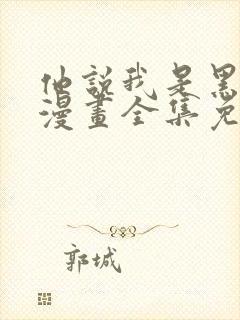 他說我是黑
漫畫全集免
郭城